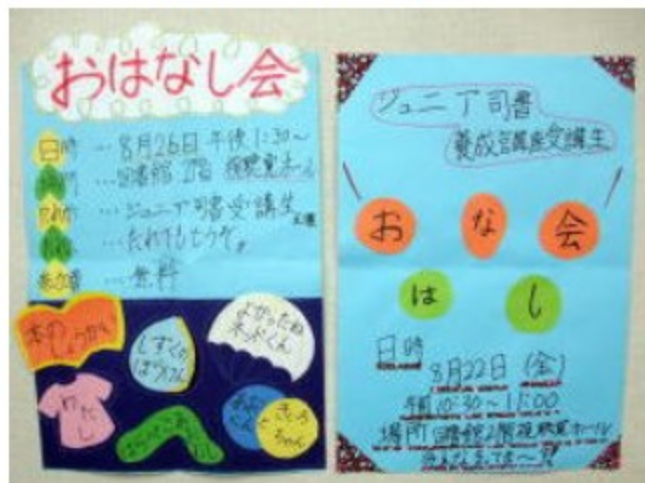 おはなし会
日時 … 8月26日 午後1:30～
… 図書館 2階 視聴覚ホール
… ジュニア司書受講生
… だれでもどうぞ。
参加費 … 無料
本のしょうかい
しずくのぼうけん
よかったねネッドくん
わたし
はらぺこあおむし
あおくんときいろちゃん
ジュニア司書
養成講座受講生
おはなし会
日時
8月22日(金)
午前10:30～11:00
場所 図書館2階視聴覚ホール